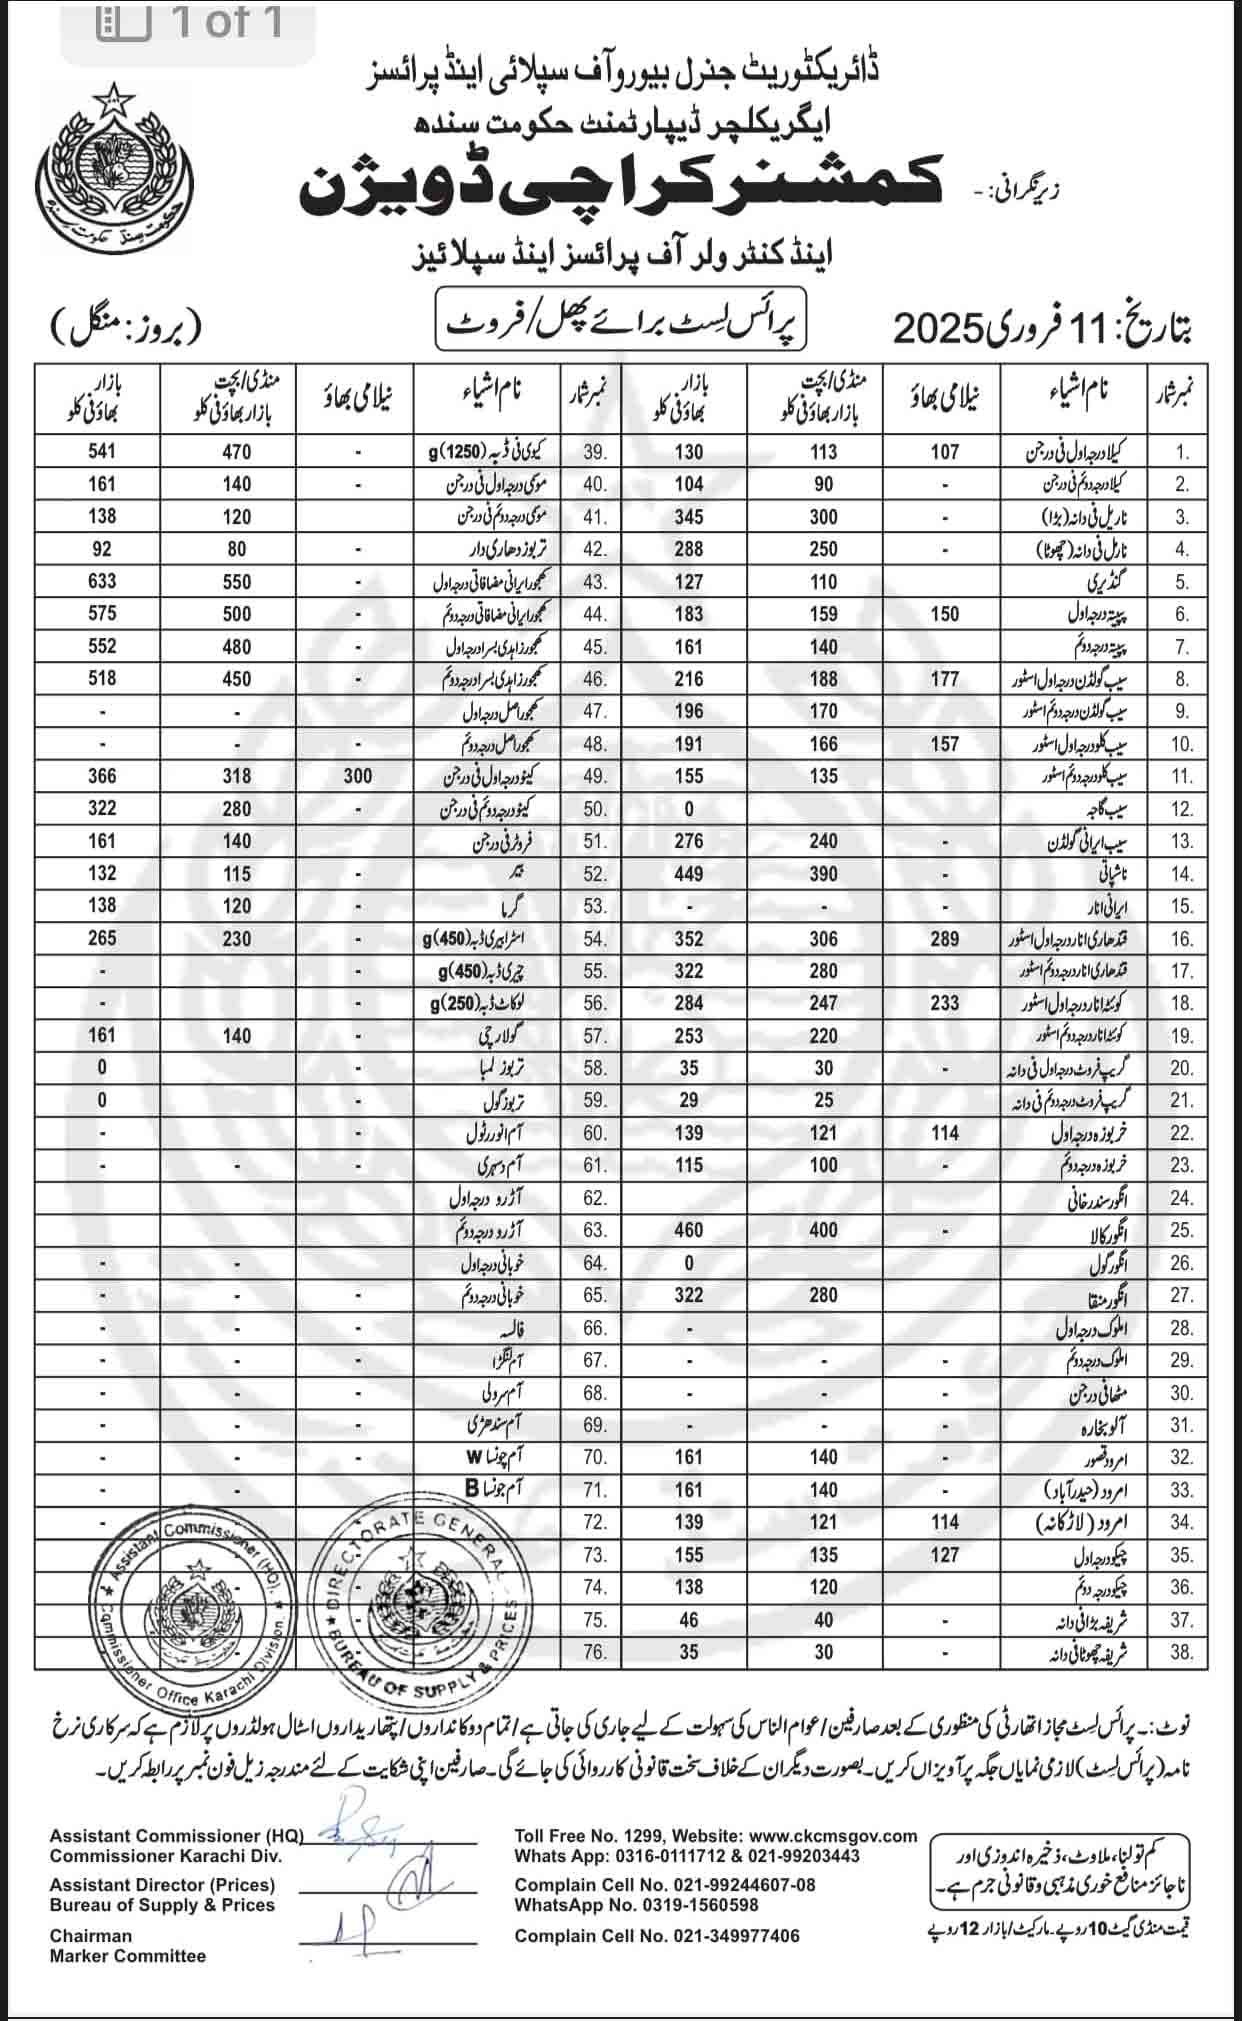 1 of 1
ڈائریکٹوریٹ جنرل بیورو آف سپلائی اینڈ پرائسز
ایگریکلچر ڈیپارٹمنٹ حکومت سندھ
زیر نگرانی:- کمشنر کراچی ڈویژن
اینڈ کنٹرولر آف پرائسز اینڈ سپلائیز
بتاریخ: 11 فروری 2025 پرائس لسٹ برائے پھل/فروٹ (بروز: منگل)
نمبر شمار نام اشیاء نیلامی بھاؤ منڈی/بچت بازار بھاؤ فی کلو بازار بھاؤ فی کلو نمبر شمار نام اشیاء نیلامی بھاؤ منڈی/بچت بازار بھاؤ فی کلو بازار بھاؤ فی کلو
1. کیلا درجہ اول فی درجن 107 113 130 39. کیوی فی ڈبہ (1250)g - 470 541
2. کیلا درجہ دوئم فی درجن - 90 104 40. موسمی درجہ اول فی درجن - 140 161
3. ناریل فی دانہ (بڑا) - 300 345 41. موسمی درجہ دوئم فی درجن 120 138
4. ناریل فی دانہ (چھوٹا) - 250 288 42. تربوز دھاری دار - 80 92
5. گنڈیری 110 127 43. کھجور ایرانی مضافاتی درجہ اول - 550 633
6. پپیتہ درجہ اول 150 159 183 44. کھجور ایرانی مضافاتی درجہ دوئم - 500 575
7. پپیتہ درجہ دوئم 140 161 45. کھجور زاہدی بسرا درجہ اول - 480 552
8. سیب گولڈن درجہ اول اسٹور 177 188 216 46. کھجور زاہدی بسرا درجہ دوئم - 450 518
9. سیب گولڈن درجہ دوئم اسٹور 170 196 47. کھجور اصل درجہ اول - -
10. سیب کلو درجہ اول اسٹور 157 166 191 48. کھجور اصل درجہ دوئم - - -
11. سیب کلو درجہ دوئم اسٹور 135 155 49. کینو درجہ اول فی درجن 300 318 366
12. سیب گاجہ 0 50. کینو درجہ دوئم فی درجن - 280 322
13. سیب ایرانی گولڈن - 240 276 51. فروٹر فی درجن - 140 161
14. ناشپاتی - 390 449 52. بیر - 115 132
15. ایرانی انار - - - 53. گرما - 120 138
16. قندھاری انار درجہ اول اسٹور 289 306 352 54. اسٹرابیری ڈبہ (450)g - 230 265
17. قندھاری انار درجہ دوئم اسٹور 280 322 55. چیری ڈبہ (450)g - -
18. کوئٹہ انار درجہ اول اسٹور 233 247 284 56. لوکاٹ ڈبہ (250)g - -
19. کوئٹہ انار درجہ دوئم اسٹور 220 253 57. گولارچی - 140 161
20. گریپ فروٹ درجہ اول فی دانہ - 30 35 58. تربوز لمبا - 0
21. گریپ فروٹ درجہ دوئم فی دانہ 25 29 59. تربوز گول - 0
22. خربوزہ درجہ اول 114 121 139 60. آم انور رٹول - -
23. خربوزہ درجہ دوئم - 100 115 61. آم دسہری - - -
24. انگور سندرخانی 62. آڑو درجہ اول
25. انگور کالا - 400 460 63. آڑو درجہ دوئم
26. انگور گول 0 64. خوبانی درجہ اول - - -
27. انگور منقا 280 322 65. خوبانی درجہ دوئم - - -
28. املوک درجہ اول - 66. فالسہ - - -
29. املوک درجہ دوئم - - - 67. آم لنگڑا - - -
30. مٹھا فی درجن - - - 68. آم سرولی - - -
31. آلو بخارہ - - - 69. آم سندھڑی - - -
32. امرود قصور 140 161 70. آم چونسا W - - -
33. امرود (حیدرآباد) - 140 161 71. آم چونسا B - - -
34. امرود (لاڑکانہ) 114 121 139 72. -
35. چیکو درجہ اول 127 135 155 73.
36. چیکو درجہ دوئم 120 138 74.
37. شریفہ بڑا فی دانہ - 40 46 75.
38. شریفہ چھوٹا فی دانہ - 30 35 76.
Assistant Commissioner (HQ), Commissioner Office Karachi Division.
DIRECTORATE GENERAL BUREAU OF SUPPLY & PRICES
نوٹ:۔ پرائس لسٹ مجاز اتھارٹی کی منظوری کے بعد صارفین/عوام الناس کی سہولت کے لیے جاری کی جاتی ہے/تمام دوکانداروں/پتھاریداروں اسٹال ہولڈروں پر لازم ہے کہ سرکاری نرخ
نامہ (پرائس لسٹ) لازمی نمایاں جگہ پر آویزاں کریں۔ بصورت دیگر ان کے خلاف سخت قانونی کارروائی کی جائے گی۔ صارفین اپنی شکایت کے لئے مندرجہ زیل فون نمبر پر رابطہ کریں۔
Assistant Commissioner (HQ)
Commissioner Karachi Div.
Assistant Director (Prices)
Bureau of Supply & Prices
Chairman
Marker Committee
Toll Free No. 1299, Website: www.ckcmsgov.com
Whats App: 0316-0111712 & 021-99203443
Complain Cell No. 021-99244607-08
WhatsApp No. 0319-1560598
Complain Cell No. 021-349977406
کم تولنا، ملاوٹ، ذخیرہ اندوزی اور
ناجائز منافع خوری مذہبی و قانونی جرم ہے۔
قیمت منڈی گیٹ 10 روپے۔ مارکیٹ/بازار 12 روپے